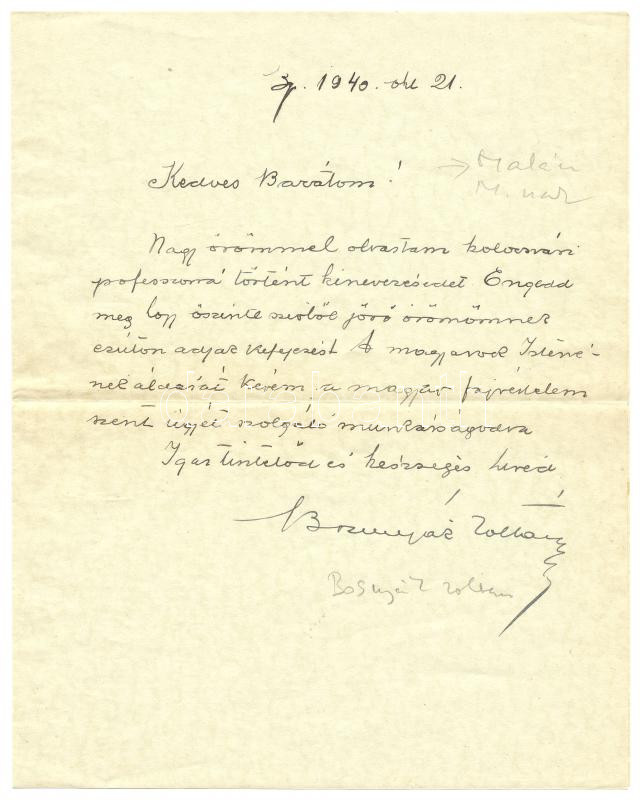 Bp. 1940. okt 21.
Kedves Barátom!
→ Malán
M.
Nagy örömmel olvastam kolozsvári
professzorrá történt kinevezésedet Engedd
meg hogy őszinte szívből jövő örömömnek
ezúton adjak kifejezést A magyarok Istené-
nek áldását kérem a magyar fajvédelem
szent ügyét szolgáló munkásságodra
Igaz tisztelőd és készséges híved
Bosnyák Zoltán
Bosnyák Zoltán